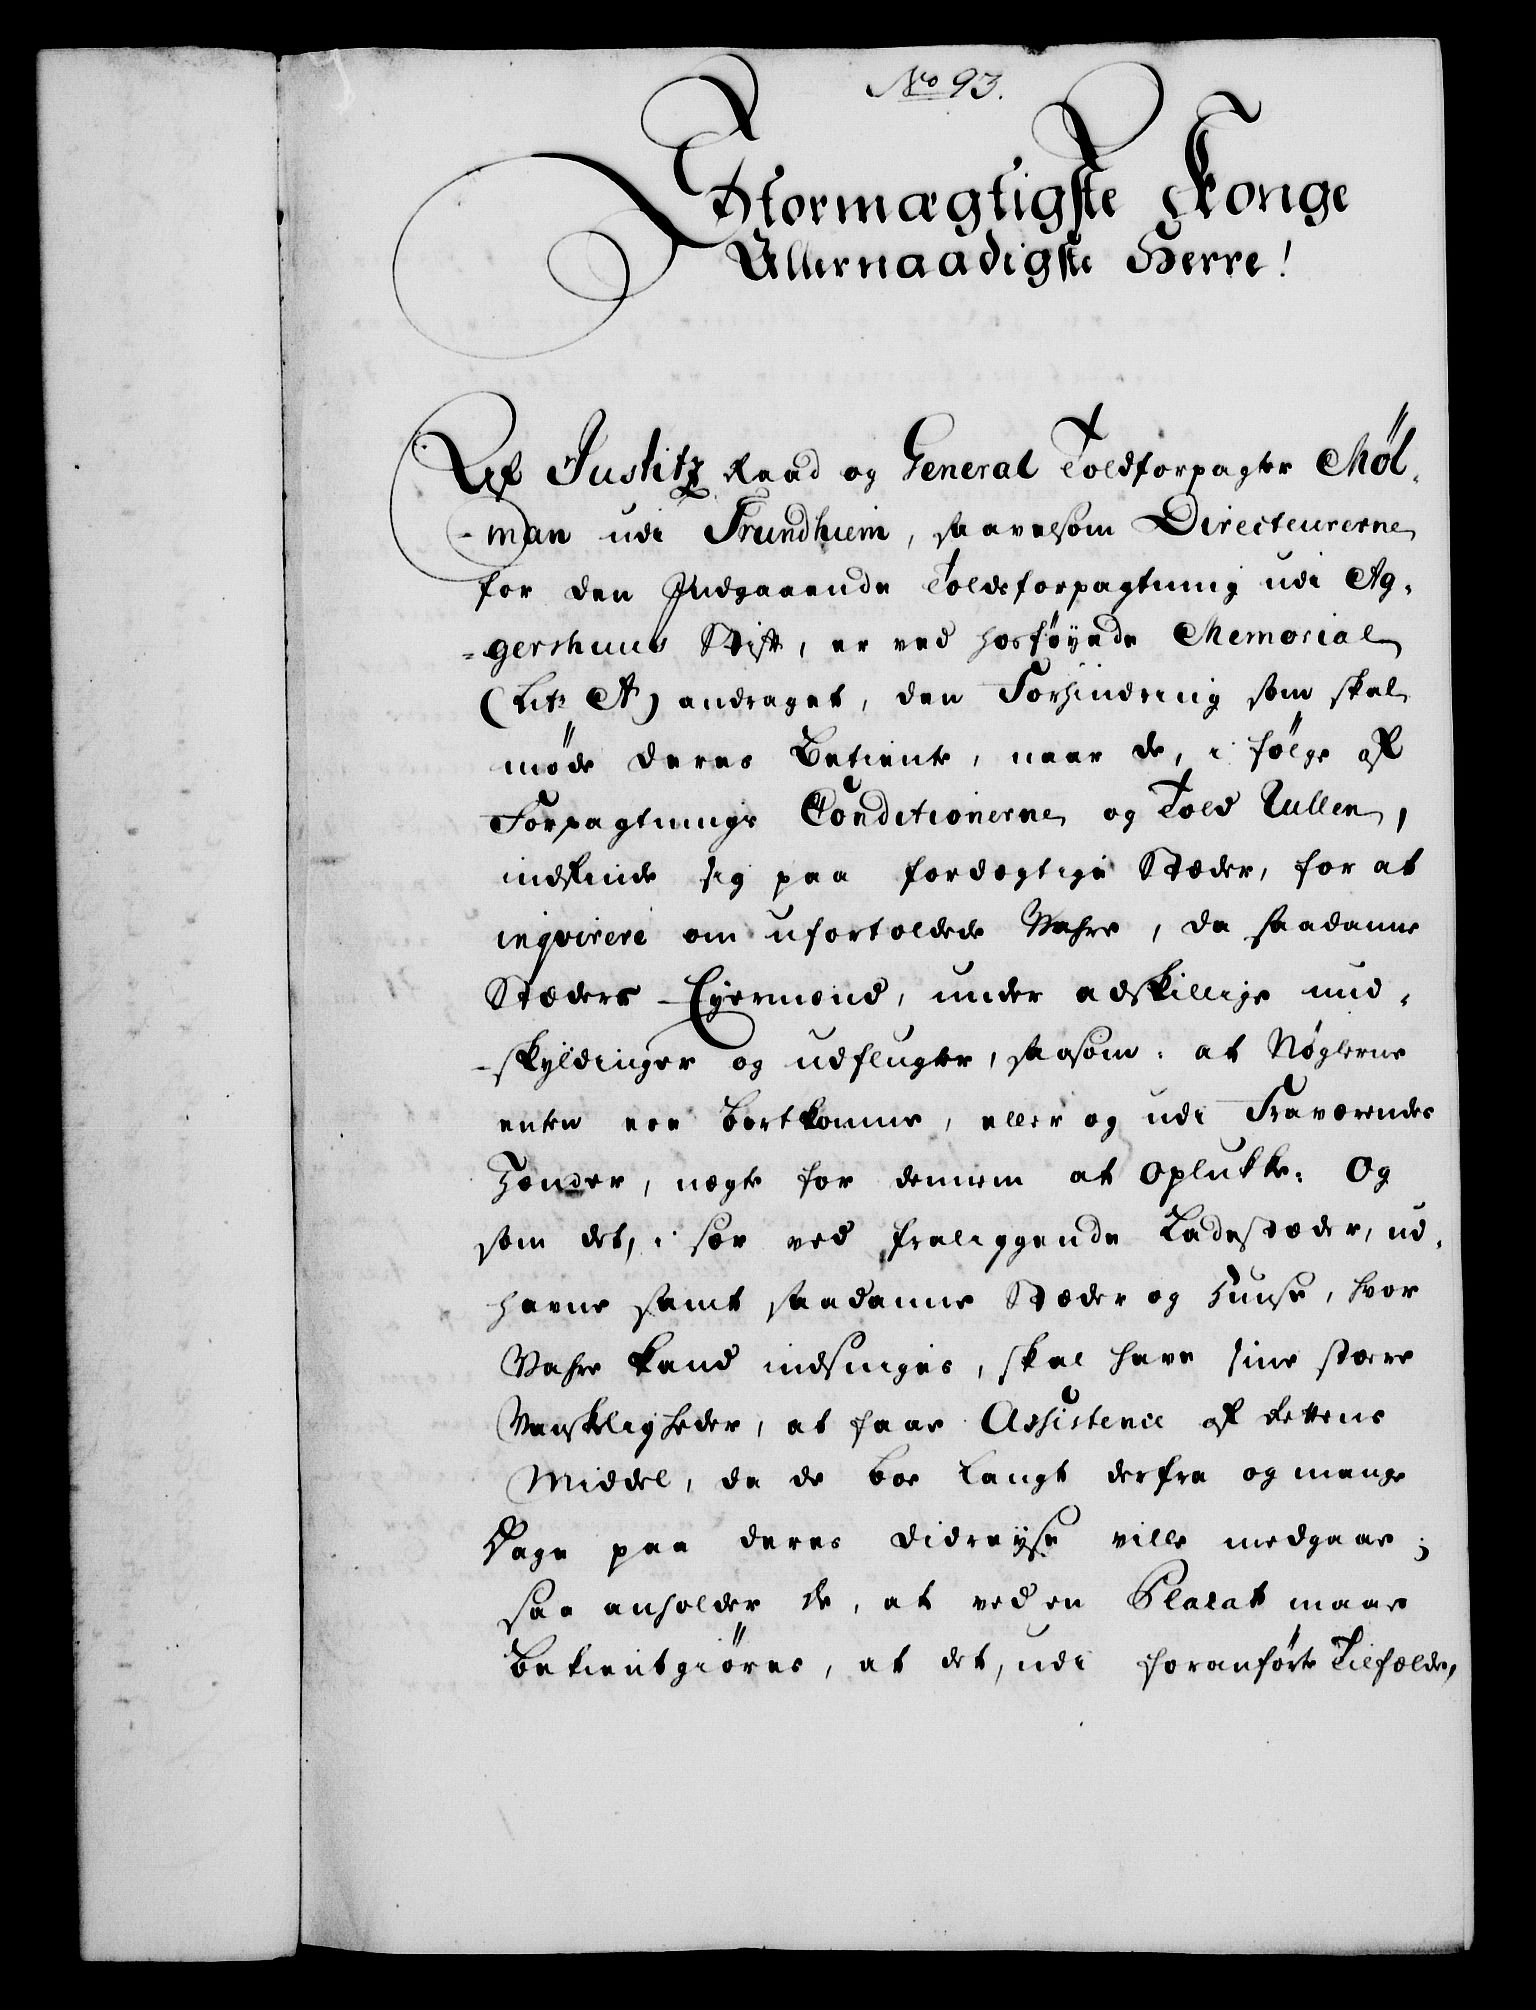 No 93.
Stormægtigste Konge
Allernaadigste Herre!
Af Justitz Raad og General Toldforpagter Møl-
-man udi Trundhiem, saavelsom Directeurerne
for den Indgaaende Toldsforpagtning udi Ag-
-gershuus Stift, er ved hosføyede Memorial
(Litr A) andraget, den Forhindring som skal
møde deres Betiente, naar de, i følge af
Forpagtnings Conditionerne og Told Rullen,
indfinde sig paa fordægtige Stæder, for at
inqvirere om ufortoldede Vahre, da saadanne
Stæders Eyermænd, under adskillige und-
-skyldinger og udflugter, saasom: at Nøglerne
enten ere bortkomne, eller og udi Fraværendes
Hænder, negte for dennem at Oplukke: Og
som det, i sær ved fraliggende Ladestæder, ud-
havne samt saadanne Stæder og Huuse, hvor
Vahre kand indsniges, skal have sine større
Vanskeligheder, at faae Assistence af Rettens
Middel, da de boe langt derfra og mange
Dage paa deres Didreyse ville medgaae;
saa anholder de, at ved en Placat maae
bekientgiøres, at det, udi foranførte Tilfælde,